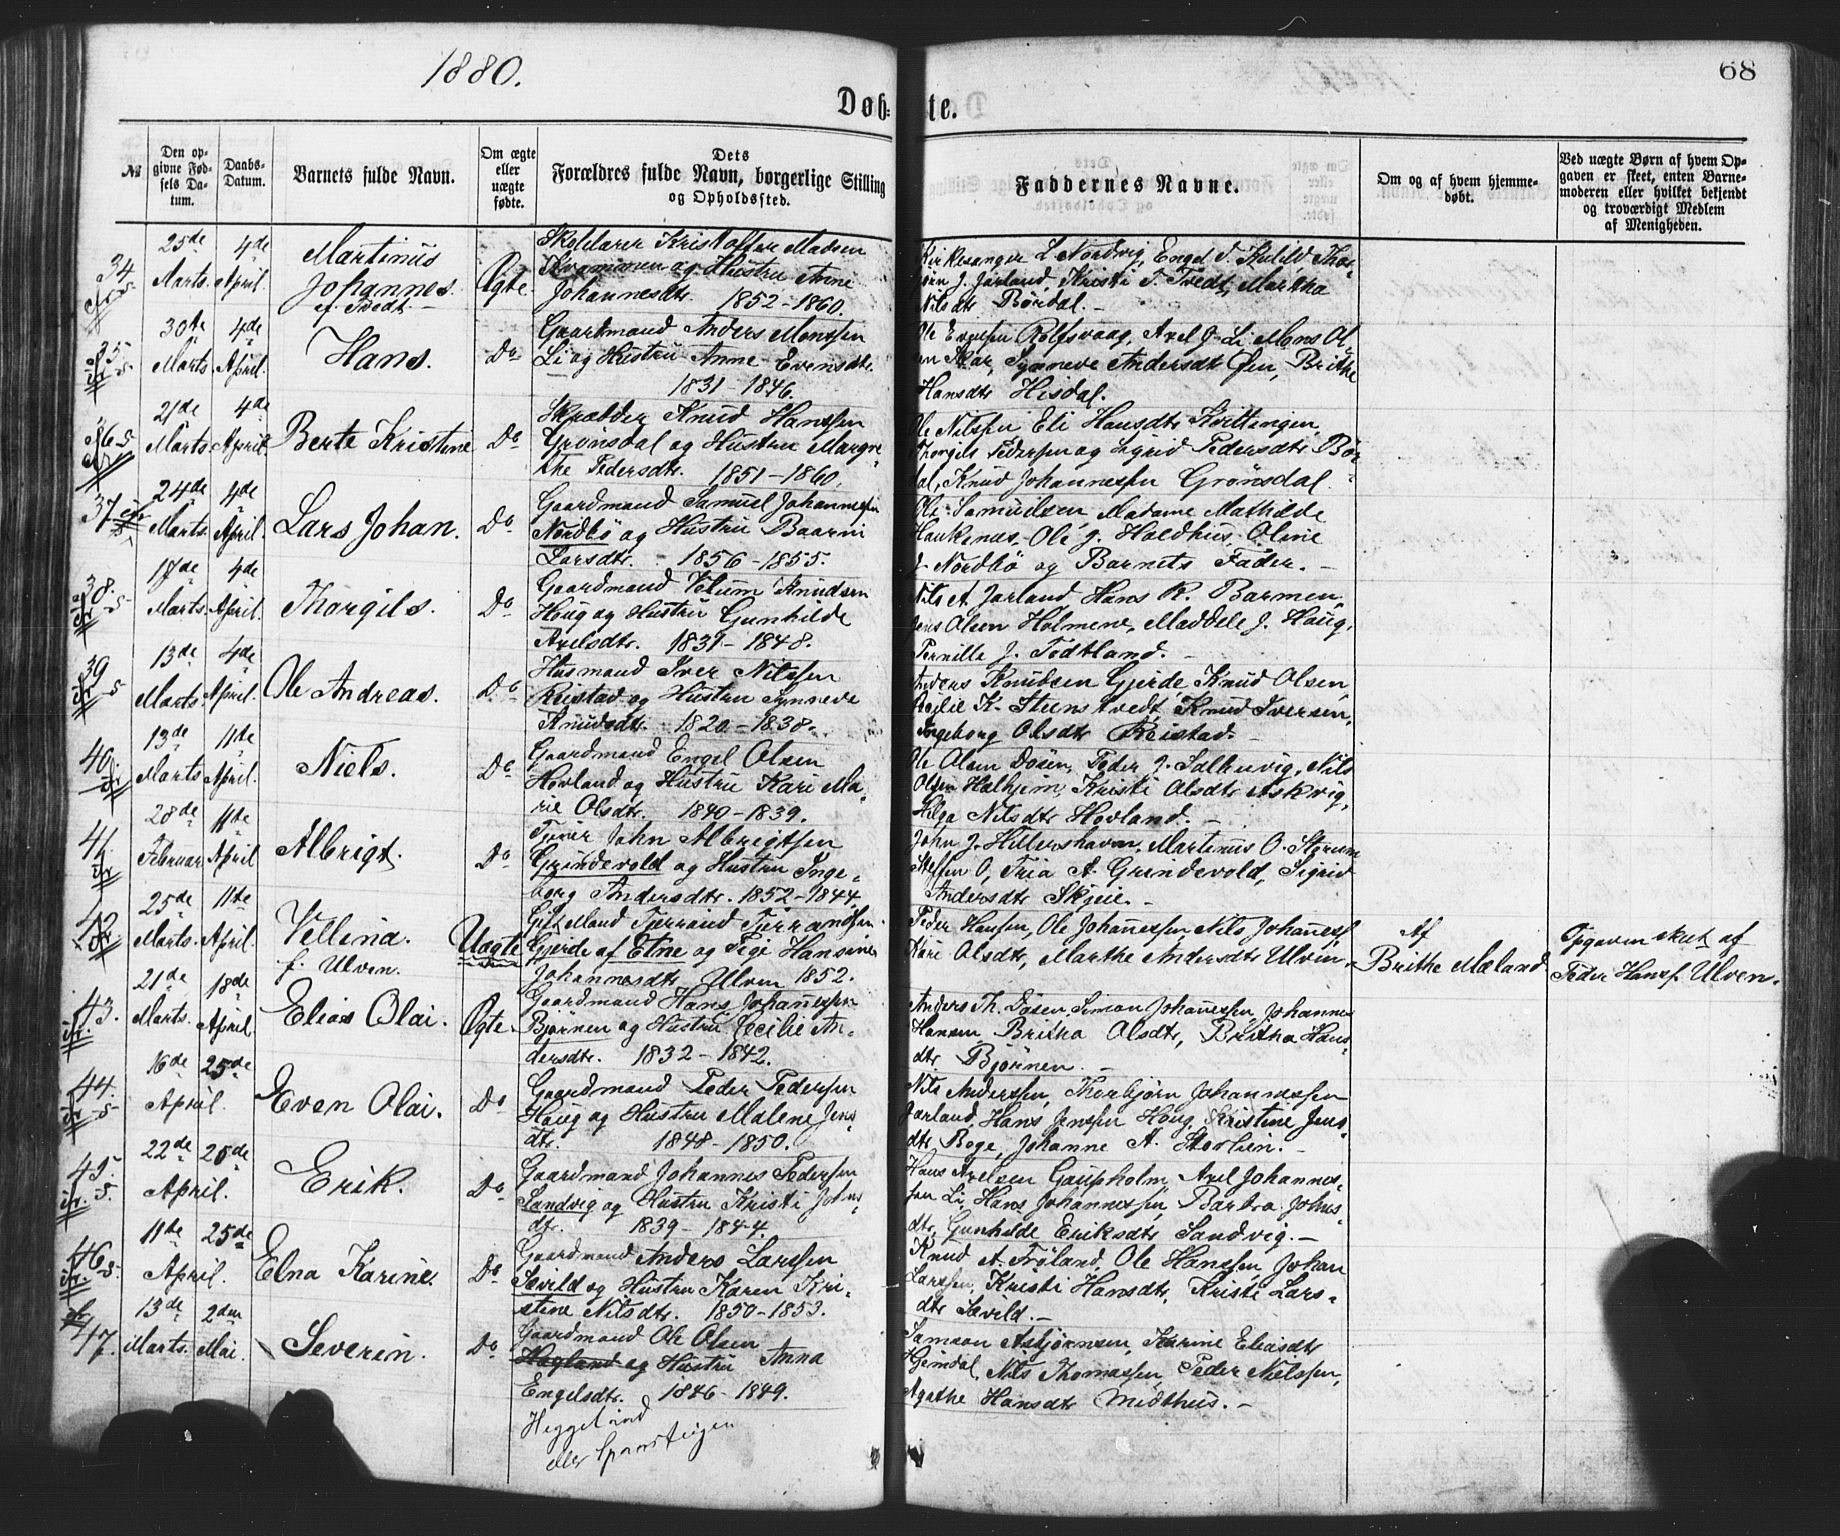 1880.
68
Døbte.
№
Den opgivne Fødsels Datum.
Daabs-Datum.
Barnets fulde Navn.
Om ægte eller uægte fødte.
Dets Forældres fulde Navn, borgerlige Stilling og Opholdssted.
Faddernes Navne.
Om og af hvem hjemmedøbt.
Ved uægte Børn af hvem Opgaven er skeet, enten Barnemoderen eller hvilket bekjendt og troværdigt Medlem af Menigheden.
34
25de Marts.
4de April.
Martinus
Johannes.
f. Tvedt
Ægte.
Skolelærer Kristoffer Madsen
og Hustru Anne
Johannesdtr. 1852-1860.
Kirkesanger L Nordvig, Engel
J. Jarland, Kristi T. Tvedt, Martha
Nilsdtr Børdal.
35
30te Marts
4de April.
Hans.
Do
Gaardmand Anders Monssen
Li og Hustru Anne Evensdtr.
1831-1846.
Ole Evensen Rolfsvaag, Axel J. Li Mons Ol
en Skar, Synneve Andersdtr Øen, Brithe
Hansdtr Hisdal.
36
21de Marts
4de April
Berte Kristine
Do
Skrædder Knud Hanssen
Grønsdal og Hustru Margre-
the Pedersdtr. 1851-1860.
Ole Nilssen Eli Hansdtr Kvittingen,
Thorgils Pedersen og Sigrid Pedersdtr Bør
dal, Knud Johannessen Grønsdal.
37
24de Marts.
4de April.
Lars Johan.
Do
Gaardmand Samuel Johannessen
Nordbø og Hustru Baarni
Larsdtr. 1856-1855.
Ole Samuelsen Madame Mathilde
Haukenæs, Ole J. Holdhus Oline
J. Nordbø og Barnets Fader.
38.
17de Marts.
4de April.
Thorgils.
Do
Gaardmand Velum Knudsen
Houg og Hustru Gunhilde
Axelsdtr. 1831-1848.
Nils A. Jarland Hans K. Barmen
Jens Olsen Holmene, Maddele J. Houg,
Pernille J. Tedtland.
39
13de Marts.
4de April.
Ole Andreas.
Do
Husmand Iver Nilssen
Reistad og Hustru Synneve
Knudsdtr. 1820-1838.
Anders Knudsen Gjerde, Knud Olsen,
Cecilie K. Steenstvedt, Knud Iversen,
Ingeborg Olsdtr Reistad.
40.
13de Marts
11te April.
Niels.
Do
Gaardmand Engel Olsen
Hovland og Hustru Kari Ma-
rie Olsdtr. 1840-1839.
Ole Olsen Døsen, Peder J. Salhusvig, Nils
Olsen Halhjem, Kristi Olsdtr Askvig,
Helga Nilsdtr Hovland.
41.
28de Februar
11te April
Albrigt.
Do
John Albrigtsen
Grindevold og Hustru Inge-
borg Andersdtr. 1852-1844.
John J. Hillershavn, Martinus O. Strøm
Steffen O, A. Grindevold, Sigrid
Andersdtr Skjeie.
42.
25de Marts.
11te April.
Vellina.
f. Ulven.
Uægte
Gift Mand Tjerrand Tjerrandsen
Gjerde af Etne og Pige Hansine
Johannesdtr Ulven 1852.
Peder Hansen, Ole Johannessen Nils Johanness.
Kari Olsdtr, Marthe Andersdtr Ulven.
Af
Brithe Mæland
Opgaven skeet af
Peder Hansf. Ulven.
43.
21de Marts.
18de April.
Elias Olai.
Ægte.
Gaardmand Hans Johannessen
Bjørnen og Hustru Cecilie An-
dersdtr. 1832-1842.
Anders Th. Døsen, Simon Johannessen, Johannes
Hansen, Britha Olsdtr, Britha Hans-
dtr Bjørnen.
44.
16de April.
25de
Even Olai.
Do
Gaardmand Peder Pederssen
Houg og Hustru Malene Jens
dtr. 1848-1850.
Nils Anderssen, Thorbjørn Johannessen
Jarland, Hans Jenssen Houg, Kristine Jens-
dtr Roge, Johanne A. Storlien.
45.
22de April.
25de
Erik.
Do
Gaardmand Johannes Pedersen
Sandvig og Hustru Kristi Johns-
dtr. 1839-1844.
Hans Axelsen Gaupholm, Axel Johannes-
sen Li, Hans Johannessen, Barbra Johns-
dtr, Gunhilde Eriksdtr Sandvig.
46
11te April.
25de
Elna Karine.
Do
Gaardmand Anders Larssen
Sævild og Hustru Karen Kri-
stine Nilsdtr. 1850-1853.
Knud A. Frøland, Ole Hanssen, Johan
Larssen, Kristi Hansdtr, Kristi Lars-
dtr Sævild.
47.
13de Marts.
2den Mai.
Severin.
Do
Gaardmand Ole Olsen
Hogland og Hustru Anna
Engelsdtr. 1846-1849.
Heggeland
eller
Samson Asbjørnsen, Karine Eliasdtr
Hjemdal, Nils Thomassen, Peder Nielssen,
Agathe Hansdtr Midthus.